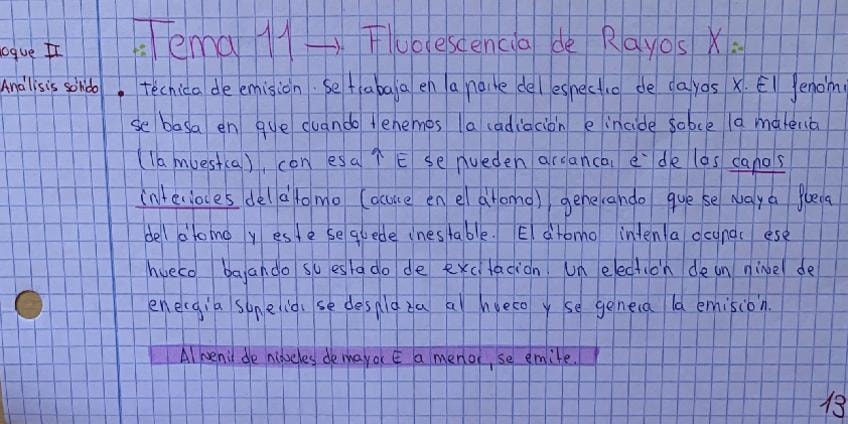 oque II
Tema 11 → Fluorescencia de Rayos X
Análisis sólido
• técnica de emisión. Se trabaja en la parte del espectro de rayos X. El fenóm
se basa en que cuando tenemos la radiación e incide sobre la materia
(la muestra), con esa ↑ E se pueden arrancar e⁻ de las capas
interiores del átomo (ocurre en el átomo), generando que se vaya fuera
del átomo y este se quede inestable. El átomo intenta ocupar ese
hueco bajando su estado de excitación. Un electrón de un nivel de
energía superior se desplaza al hueco y se genera la emisión.
Al venir de niveles de mayor E a menor, se emite.
13